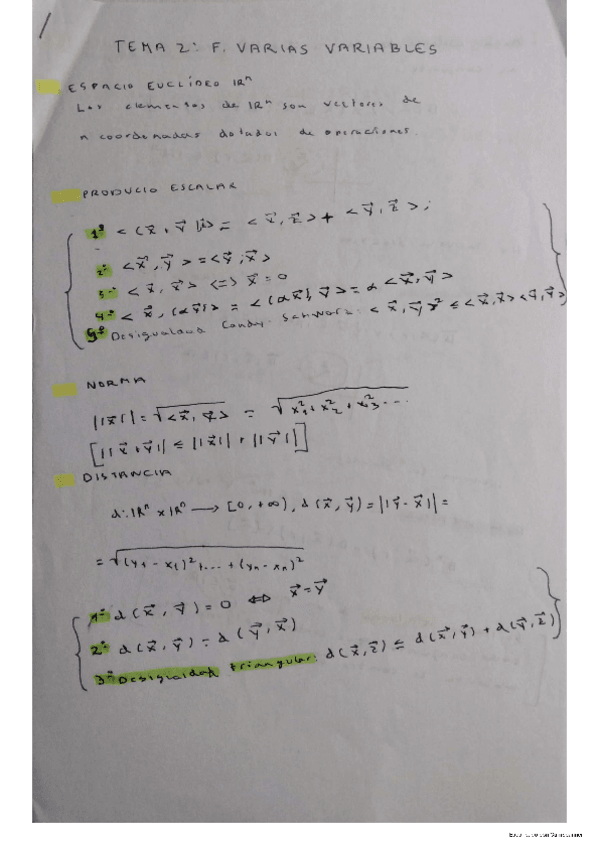 TEMA 2: F. VARIAS VARIABLES
ESPACIO EUCLÍDEO IRⁿ
Los elementos de IRⁿ son vectores de
n coordenadas dotados de operaciones
PRODUCTO ESCALAR
1º < (x⃗ + y⃗ | z⃗ > = < x⃗, z⃗ > + < y⃗, z⃗ > ;
2º < x⃗, y⃗ > = < y⃗, x⃗ >
3º < x⃗, x⃗ > <=> x⃗ = 0
4º < x⃗, (αy⃗) = < (αx⃗), y⃗ > = α < x⃗, y⃗ >
5º Desigualdad < x⃗, y⃗ >² ≤ < x⃗, x⃗ > < y⃗, y⃗ >
NORMA
||x⃗|| = √< x⃗, x⃗ > = √x₁² + x₂² + x₃² ...
[||x⃗ + y⃗|| ≤ ||x⃗|| + ||y⃗||]
DISTANCIA
d: IRⁿ x IRⁿ → [0, +∞), d(x⃗, y⃗) = ||y⃗ - x⃗|| =
= √(y₁ - x₁)² + ... + (yₙ - xₙ)²
1º d(x⃗, y⃗) = 0 ⇔ x⃗ = y⃗
2º d(x⃗, y⃗) = d(y⃗, x⃗)
3º Desigualdad triangular: d(x⃗, z⃗) ≤ d(x⃗, y⃗) + d(y⃗, z⃗)